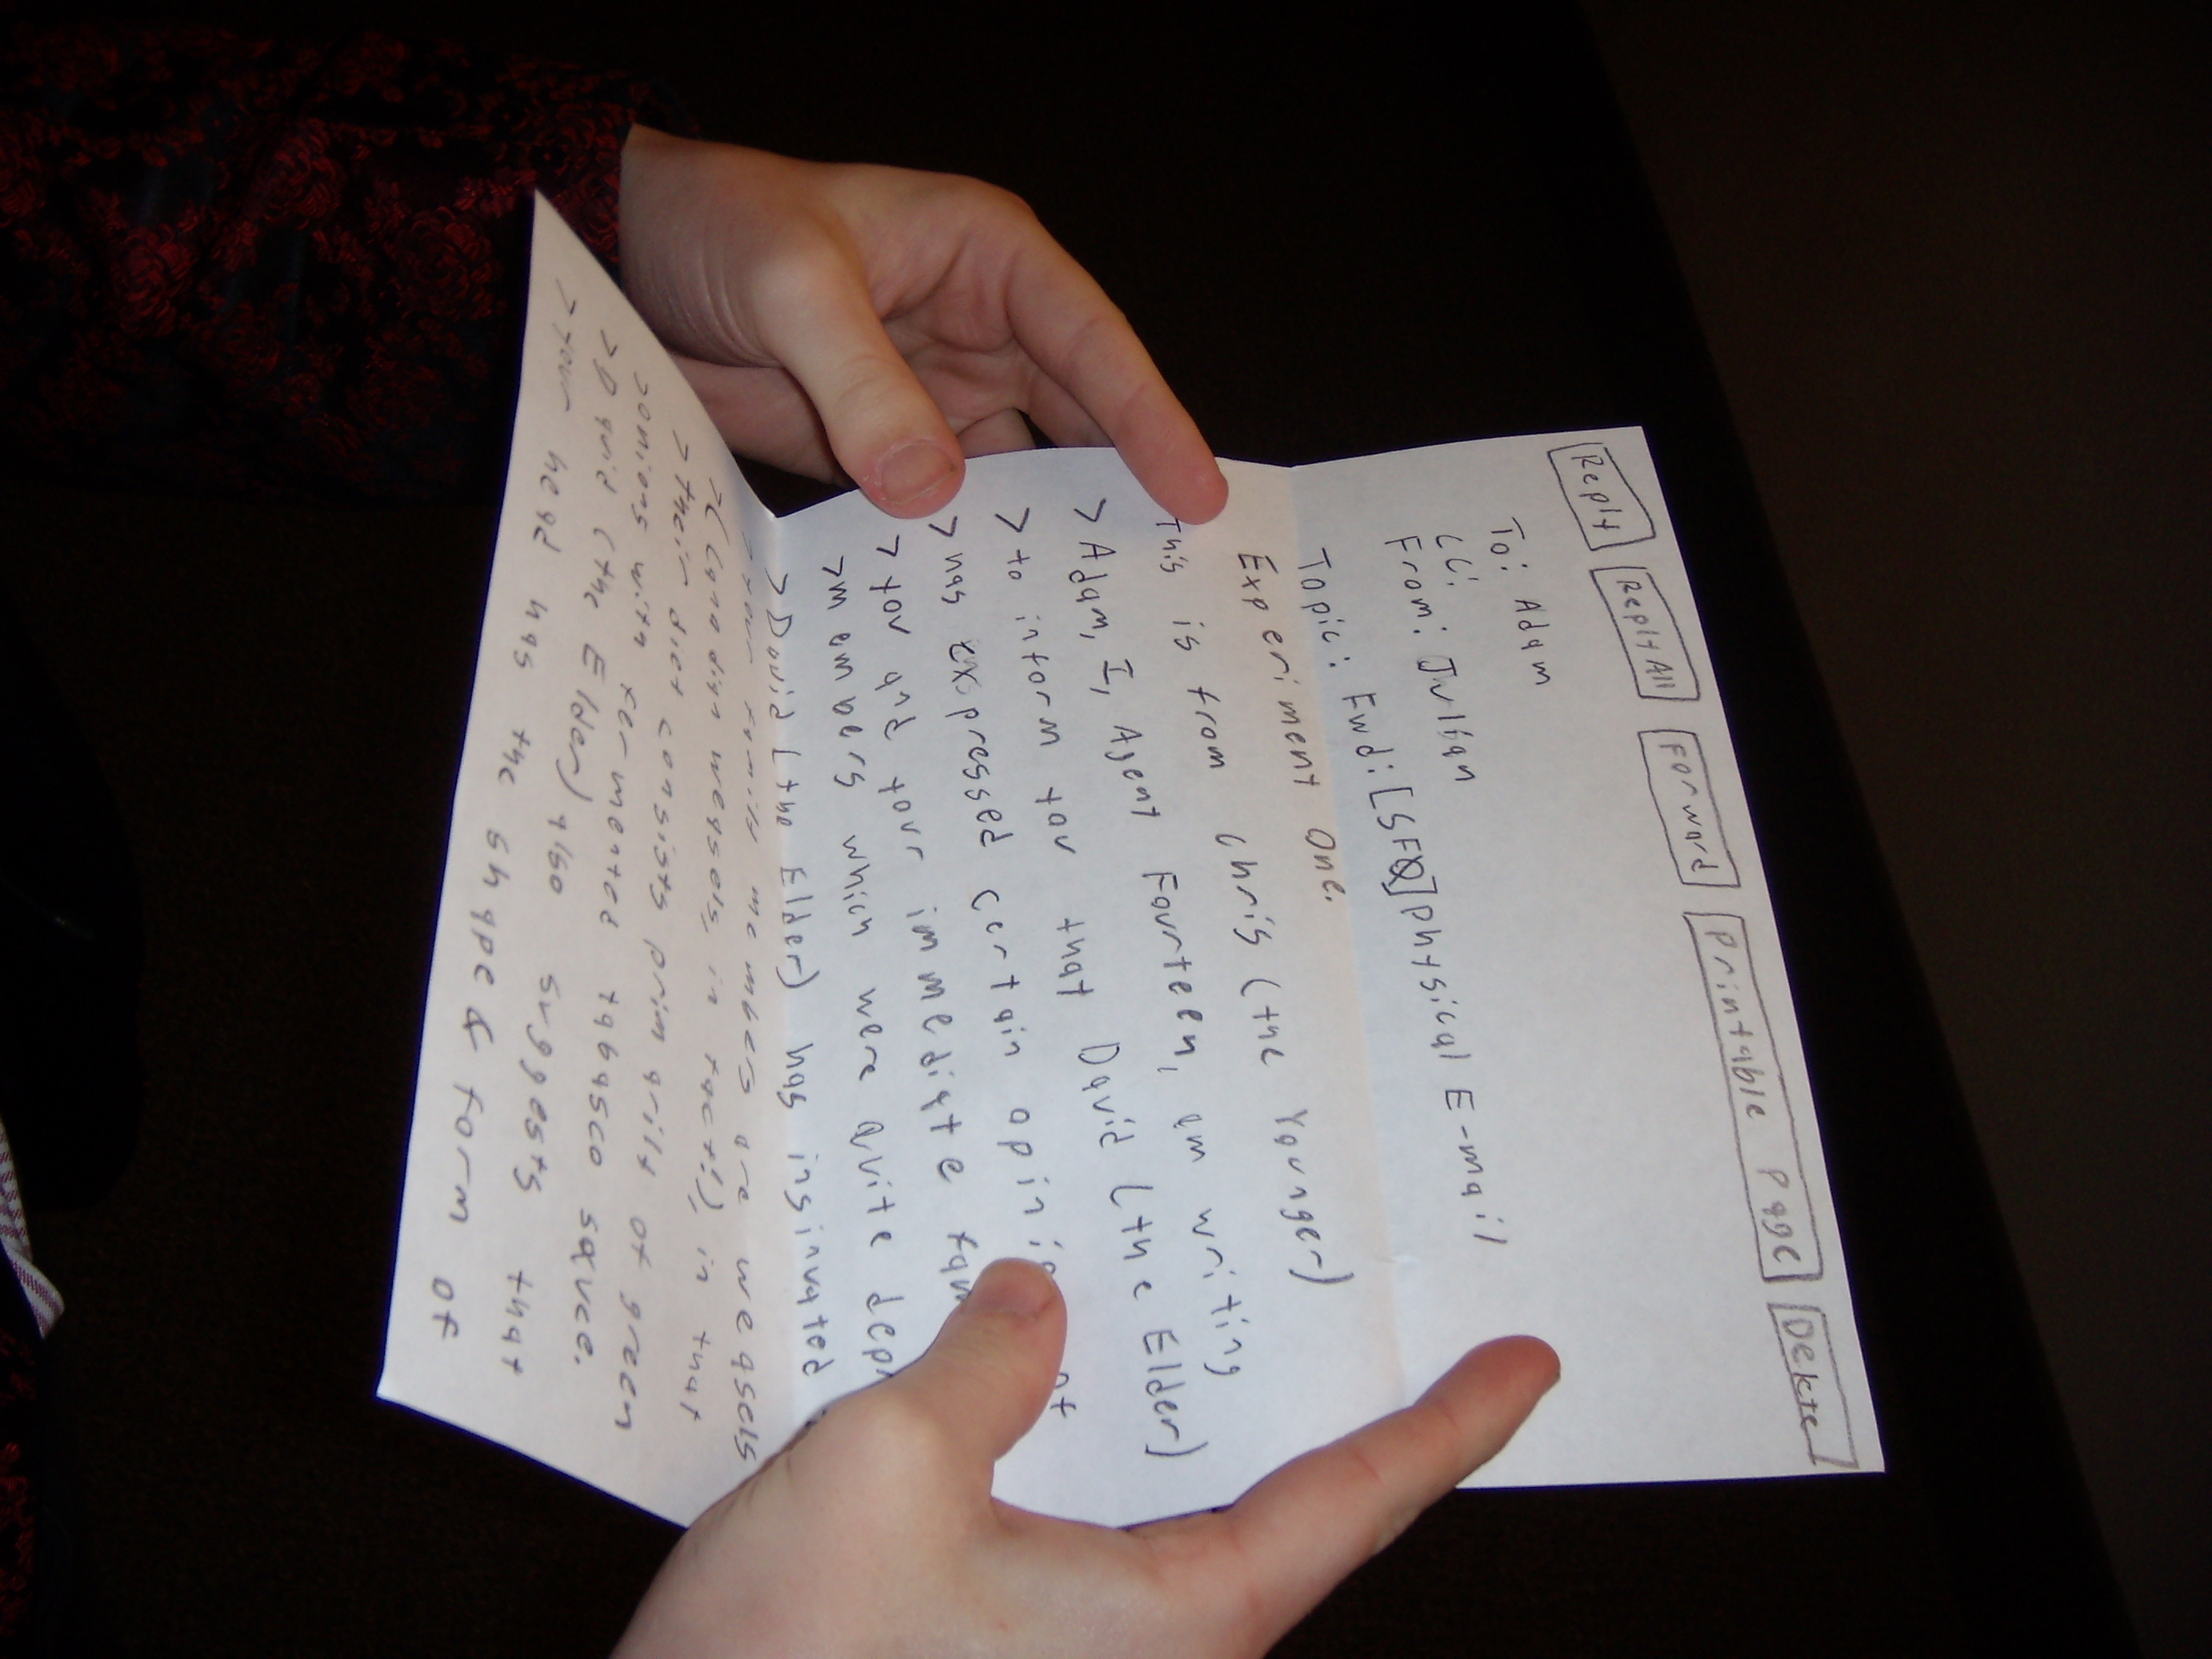 Reply Reply All Forward Printable Page Delete
To: Adam
CC:
From: Julian
Topic: Fwd: [SFQ] Physical E-mail
Experiment One.
This is from Chris (the Younger)
> Adam, I, Agent Fourteen, am writing
> to inform you that David (the Elder)
> has expressed certain of
> you and your immediate
> members which were quite
> David (the Elder) has insinuated
> your family members are weasels
> (Canadian weasels, in fact!), in that
> their diet consists primarily of green
> onions with fermented tabasco sauce.
> David (the Elder) also suggests that
> your head has the shape & form of